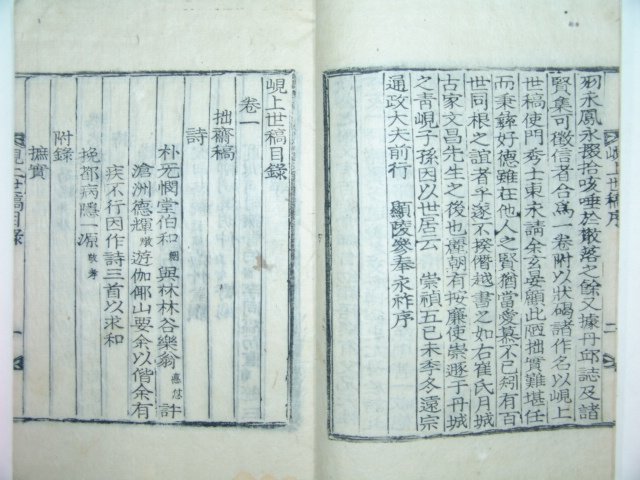 永鳳永掇拾咳唾於散落之餘又據丹邱誌及諸
賢集可徵信者合爲一卷附以狀碣諸作名以峴上
世稿使門秀士東宋請余玄晏顧此陋拙實難堪任
而秉彝好德雖在他人之賢猶當愛慕不已矧有百
世同根之誼者乎遂不揆僭越書之如右崔氏月城
古家文昌先生之後也
朝有按廉使崇
於丹城
之青峴子孫因以世居云 崇禎五己未季冬遠宗
通政大夫前行 顯陵參奉永祚序
峴上世稿序
二
峴上世稿目錄
卷一
拙齋稿
詩
朴无憫堂伯和絪與林林谷樂翁真怤許
滄洲德輝燉遊伽倻山要余以偕余有
疾不行因作詩三首以求和
挽都病隱一源敬孝
附錄
摭實
峴上世稿目錄
一